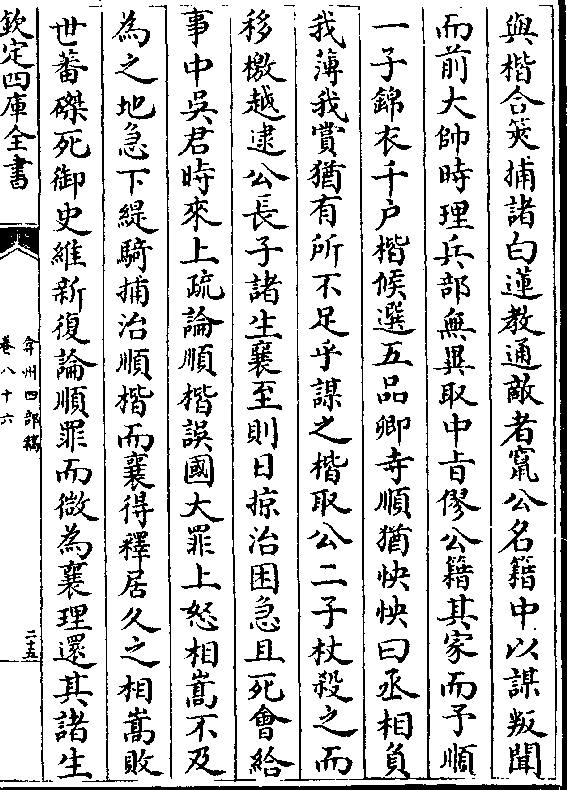 與楷合筴捕諸白蓮教通敵者竄公名籍中以謀叛聞
而前大帥時理兵部無異取中㫖僇公籍其家而予順
一子錦衣千户楷候選五品卿寺順猶怏怏曰丞相負
我薄我賞猶有所不足乎謀之楷取公二子杖殺之而
移檄越逮公長子諸生襄至則日掠治困急且死會給
事中吳君時來上疏論順楷誤國大罪上怒相嵩不及
為之地急下緹騎捕治順楷而襄得釋居久之相嵩敗
世蕃磔死御史維新復論順罪而微為襄理還其諸生
欽定四庫全書
弇州四部稿
卷八十六
二十五